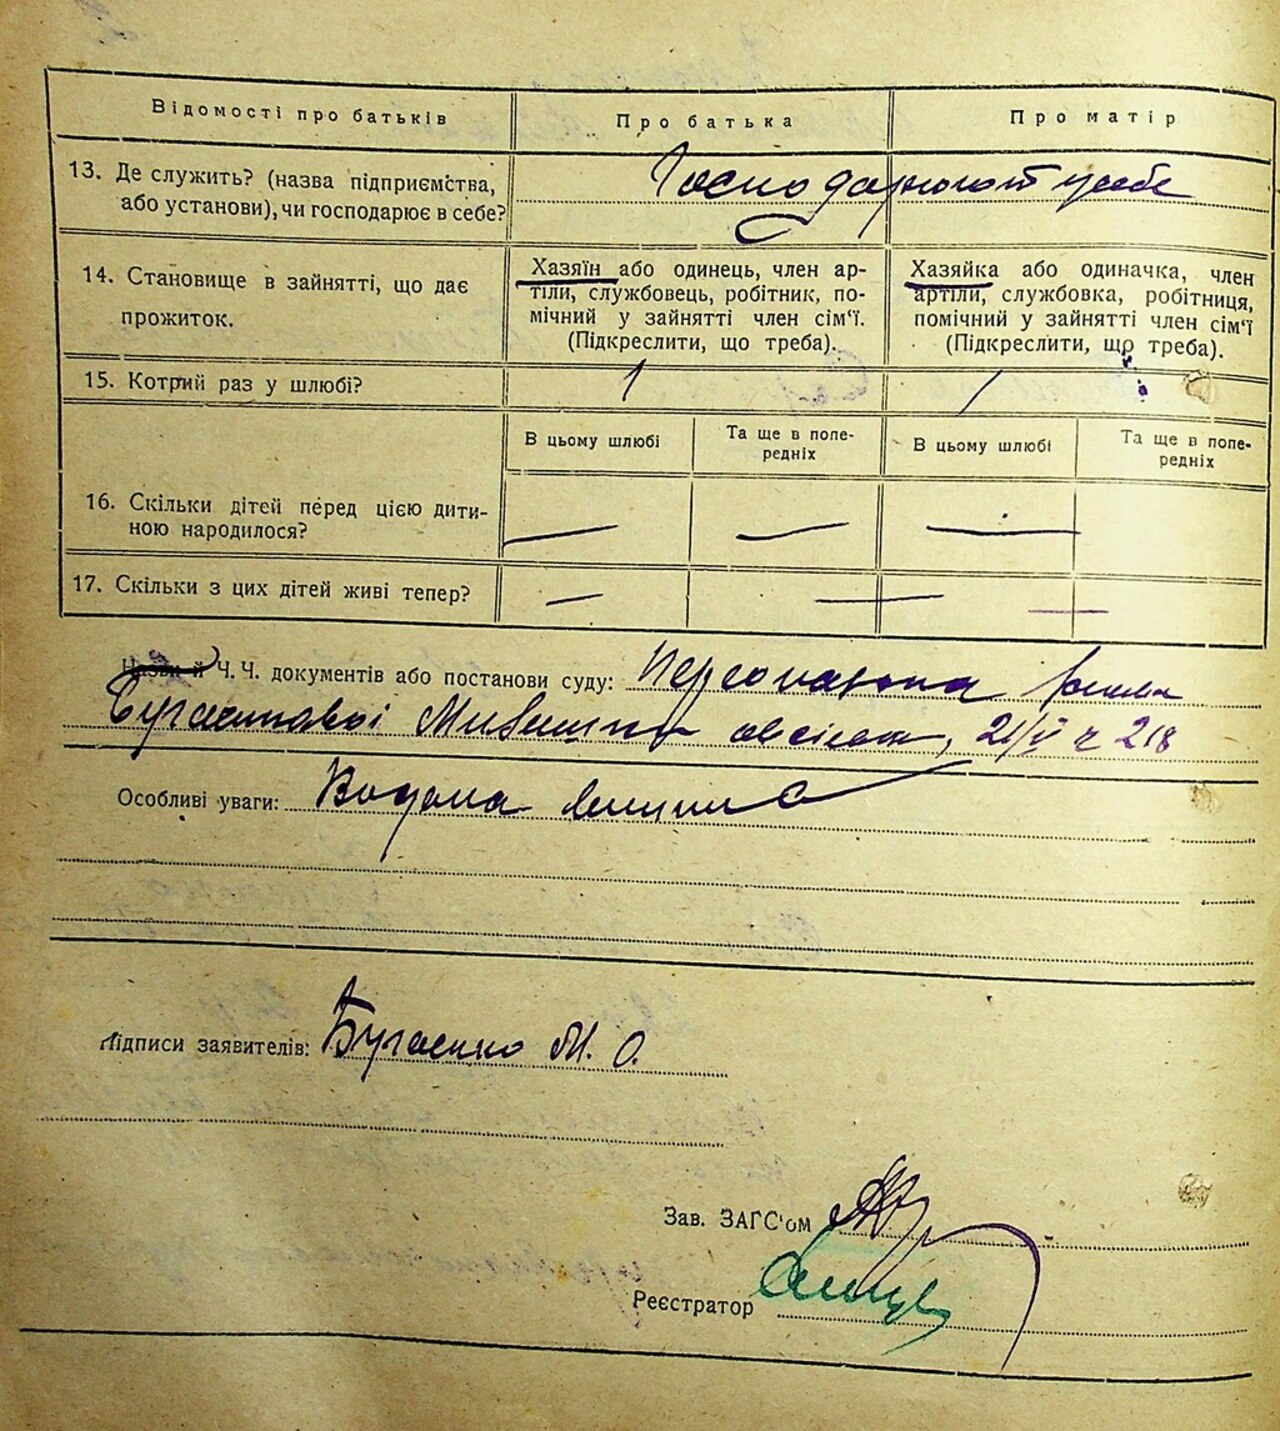 Відомості про батьків
Про батька
Про матір
13. Де служить? (назва підприємства,
або установи), чи господарює в себе?
Господарюют у себе
14. Становище в зайнятті, що дає
прожиток.
Хазяїн або одинець, член ар-
тіли, службовець, робітник, по-
мічний у зайнятті член сім'ї.
(Підкреслити, що треба).
Хазяйка або одиначка, член
артіли, службовка, робітниця,
помічний у зайнятті член сім'ї
(Підкреслити, що треба).
15. Котрий раз у шлюбі?
1
1
В цьому шлюбі
Та ще в попе-
редніх
В цьому шлюбі
Та ще в попе-
редніх
16. Скільки дітей перед цією дити-
ною народилося?
17. Скільки з цих дітей живі тепер?
Назви й Ч.Ч. документів або постанови суду:
21/V ч 218
Особливі уваги: Видана
Підписи заявителів: Бугаенко М. О.
Зав. ЗАГС'ом
Реєстратор